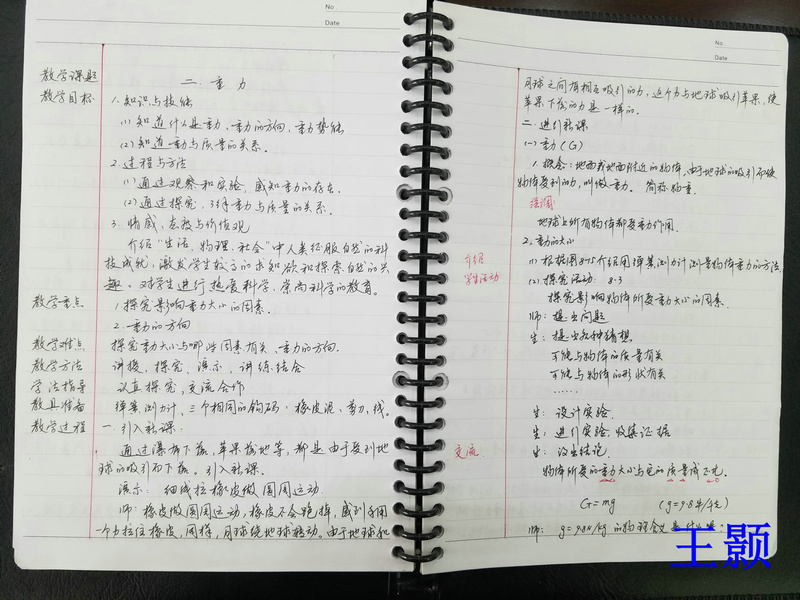 No.
Date
教学课题
二、重力
教学目标
1.知识与技能
(1)知道什么是重力、重力的方向、重力势能
(2)知道重力与质量的关系.
2.过程与方法
(1)通过观察和实验,感知重力的存在.
(2)通过探究,了解重力与质量的关系.
3.情感、态度与价值观
介绍“生活、物理、社会”中人类征服自然的科
技成就,激发学生较高的求知欲和探索自然的兴
趣。对学生进行热爱科学、崇尚科学的教育.
教学重点
1.探究影响重力大小的因素.
2.重力的方向
教学难点
探究重力大小与哪些因素有关、重力的方向.
教学方法
讲授、探究、演示、讲练结合
学法指导
认真探究,交流合作
教具准备
弹簧测力计、三个相同的钩码、橡皮泥、剪刀、线。
教学过程
一、引入新课:
通过瀑布下落,苹果落地等,都是由于受到地
球的吸引而下落.引入新课.
演示:细线拉橡皮做圆周运动
师:橡皮做圆周运动,橡皮不会跑掉,感到手用
一个力拉住橡皮,同样,月球绕地球转动.由于地球和
No
Date
月球之间有相互吸引的力,这个力与地球吸引苹果,使
苹果下落的力是一样的.
二、进行新课
(一)重力(G)
1.概念:地面或地面附近的物体,由于地球的吸引而使
物体受到的力,叫做重力。简称物重.
强调:
地球上所有物体都受重力作用.
2.重力的大小
介绍
(1)根据图8-15介绍用弹簧测力计测量物体重力的方法
学生活动
(2)探究活动:8.3
探究影响物体所受重力大小的因素.
师:提出问题
生:提出各种猜想
可能与物体的质量有关
可能与物体的形状有关
……
生:设计实验.
生:进行实验,收集证据
交流
生:得出结论.
物体所受的重力大小与它的质量成正比.
G=mg (g=9.8牛/千克)
师:g=9.8N/kg的物理含义是什么?
王颢